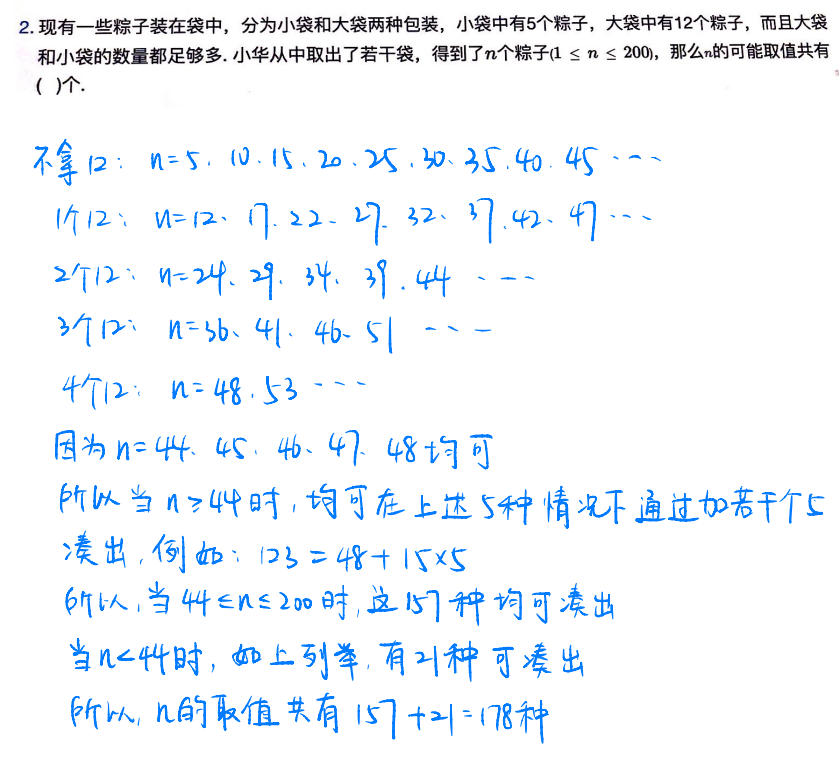 2. 现有一些粽子装在袋中，分为小袋和大袋两种包装，小袋中有5个粽子，大袋中有12个粽子，而且大袋
和小袋的数量都足够多. 小华从中取出了若干袋，得到了n个粽子(1 ≤ n ≤ 200)，那么n的可能取值共有
( )个.
不拿12：n=5、10、15、20、25、30、35、40、45……
1个12：n=12、17、22、27、32、37、42、47……
2个12：n=24、29、34、39、44……
3个12：n=36、41、46、51……
4个12：n=48、53……
因为n=44、45、46、47、48均可
所以当n≥44时，均可在上述5种情况下通过加若干个5
凑出，例如：123=48+15×5
所以，当44≤n≤200时，这157种均可凑出
当n<44时，如上列举，有21种可凑出
所以，n的取值共有157+21=178种